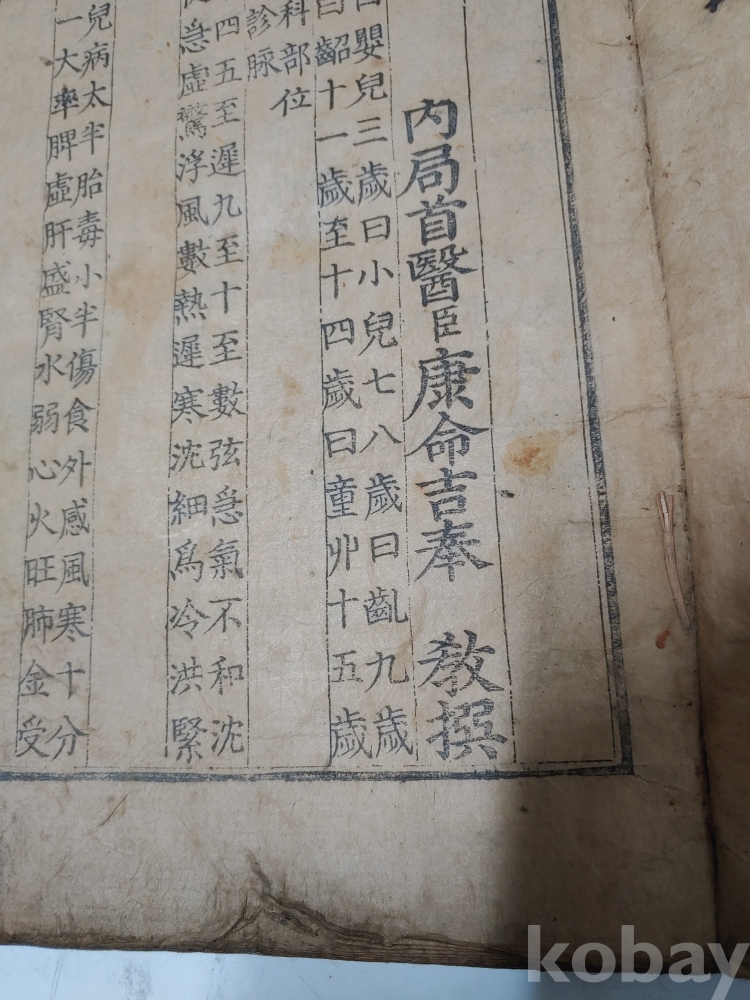 內局首醫臣康命吉奉 教撰
嬰兒三歲曰小兒七八歲曰齓九歲
曰齠十一歲至十四歲曰童丱十五歲
科部位
診脉
四五至遲九至十至數弦急氣不和沈
急虛驚浮風數熱遲寒沈細爲冷洪緊
兒病太半胎毒小半傷食外感風寒十分
一大率脾虛肝盛腎水弱心火旺肺金受
kobay